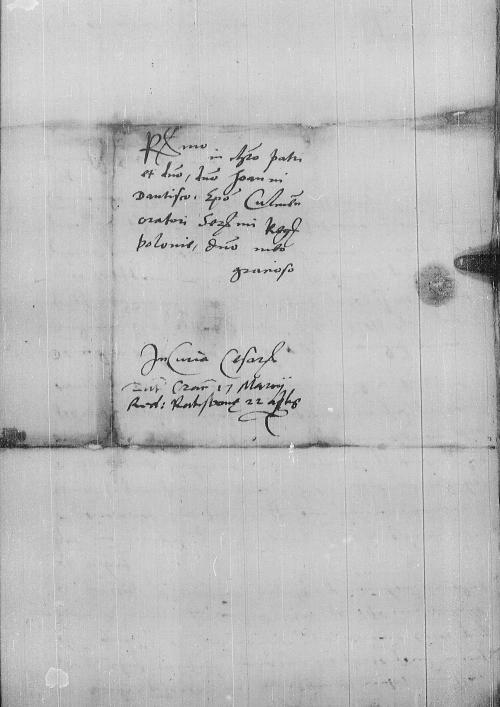 R mo in chro patri
et dno, dno Joanni
Dantisco, Epo Culmen
oratori Ser mi Reg
Polonie, dno meo
gratioso
In Curia Cesar
Dat Crac 17 Marcij
Red: Ratisbone 22 aplis